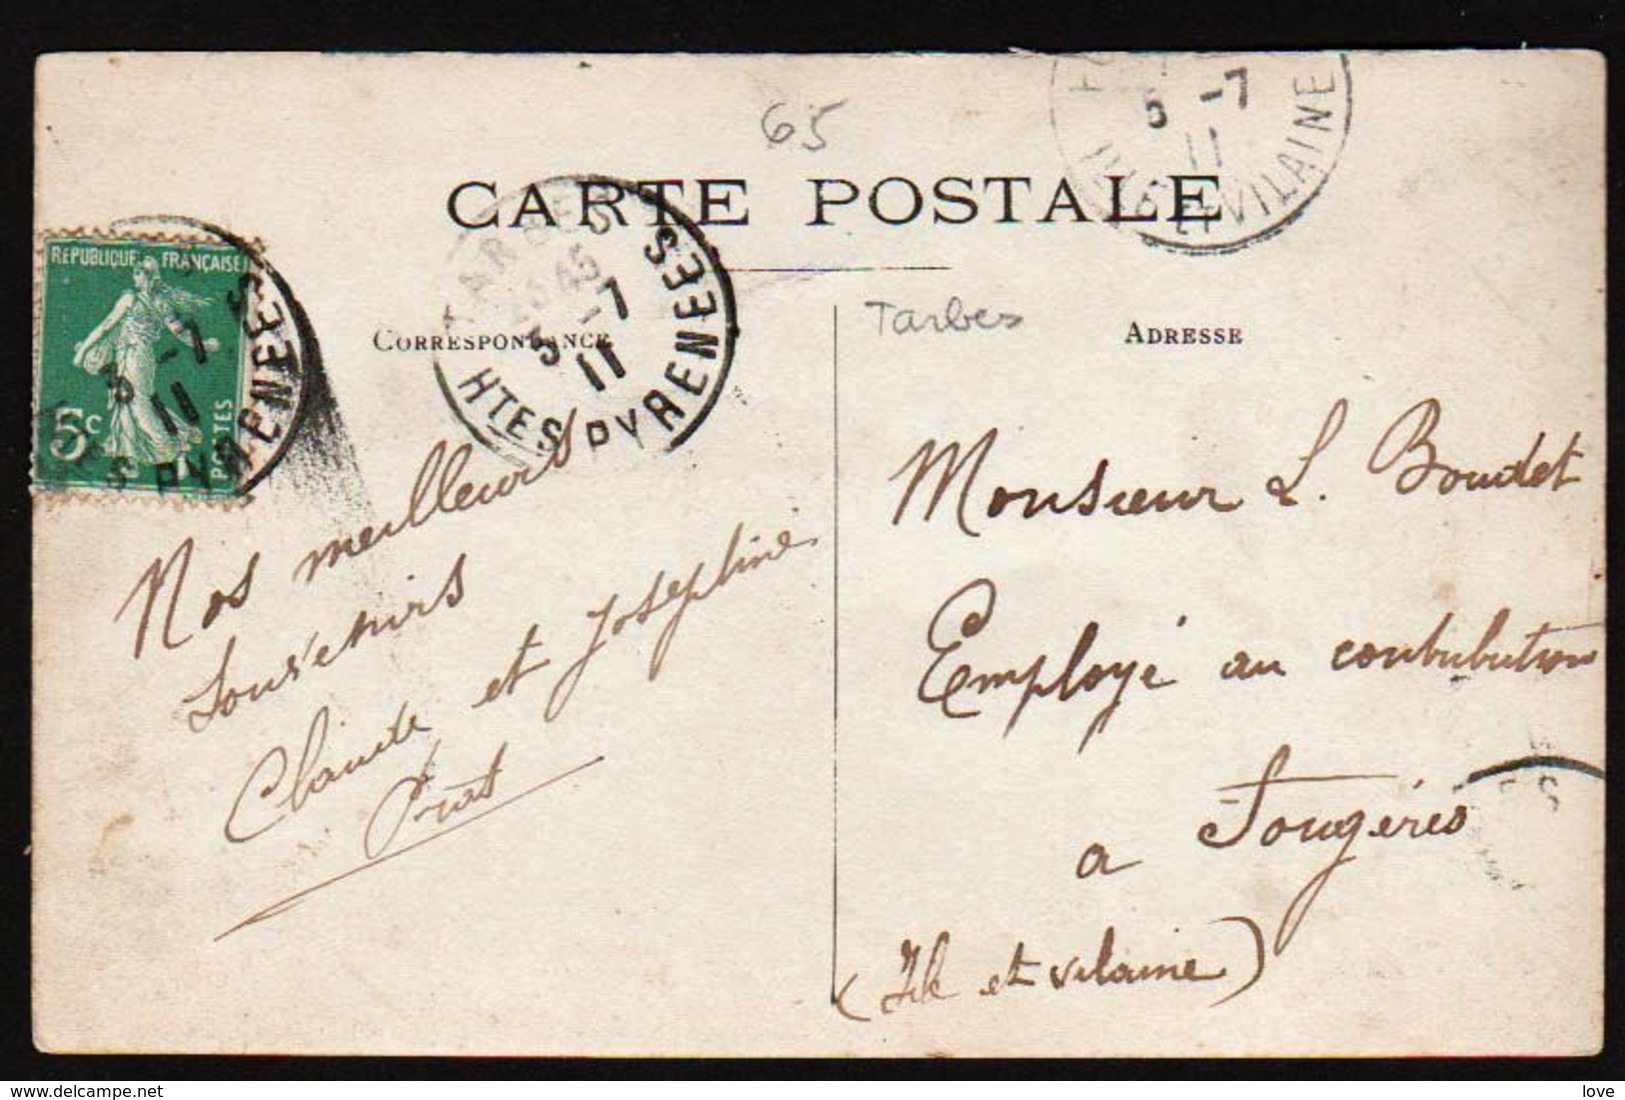 65
CARTE POSTALE
5 -7
11
ILLE-ET-VILAINE
REPUBLIQUE FRANÇAISE
5c
POSTES
3 -7
11
PYRENEES
TARBES
3 -7
11
HTES PYRENEES
CORRESPONDANCE
Tarbes
ADRESSE
Nos meilleurs
Souvenirs
Claude et Joséphine
Prat
Monsieur L. Boudet
Employé au contribution
a Fougères
(Ile et vilaine)
delcampe.net
love